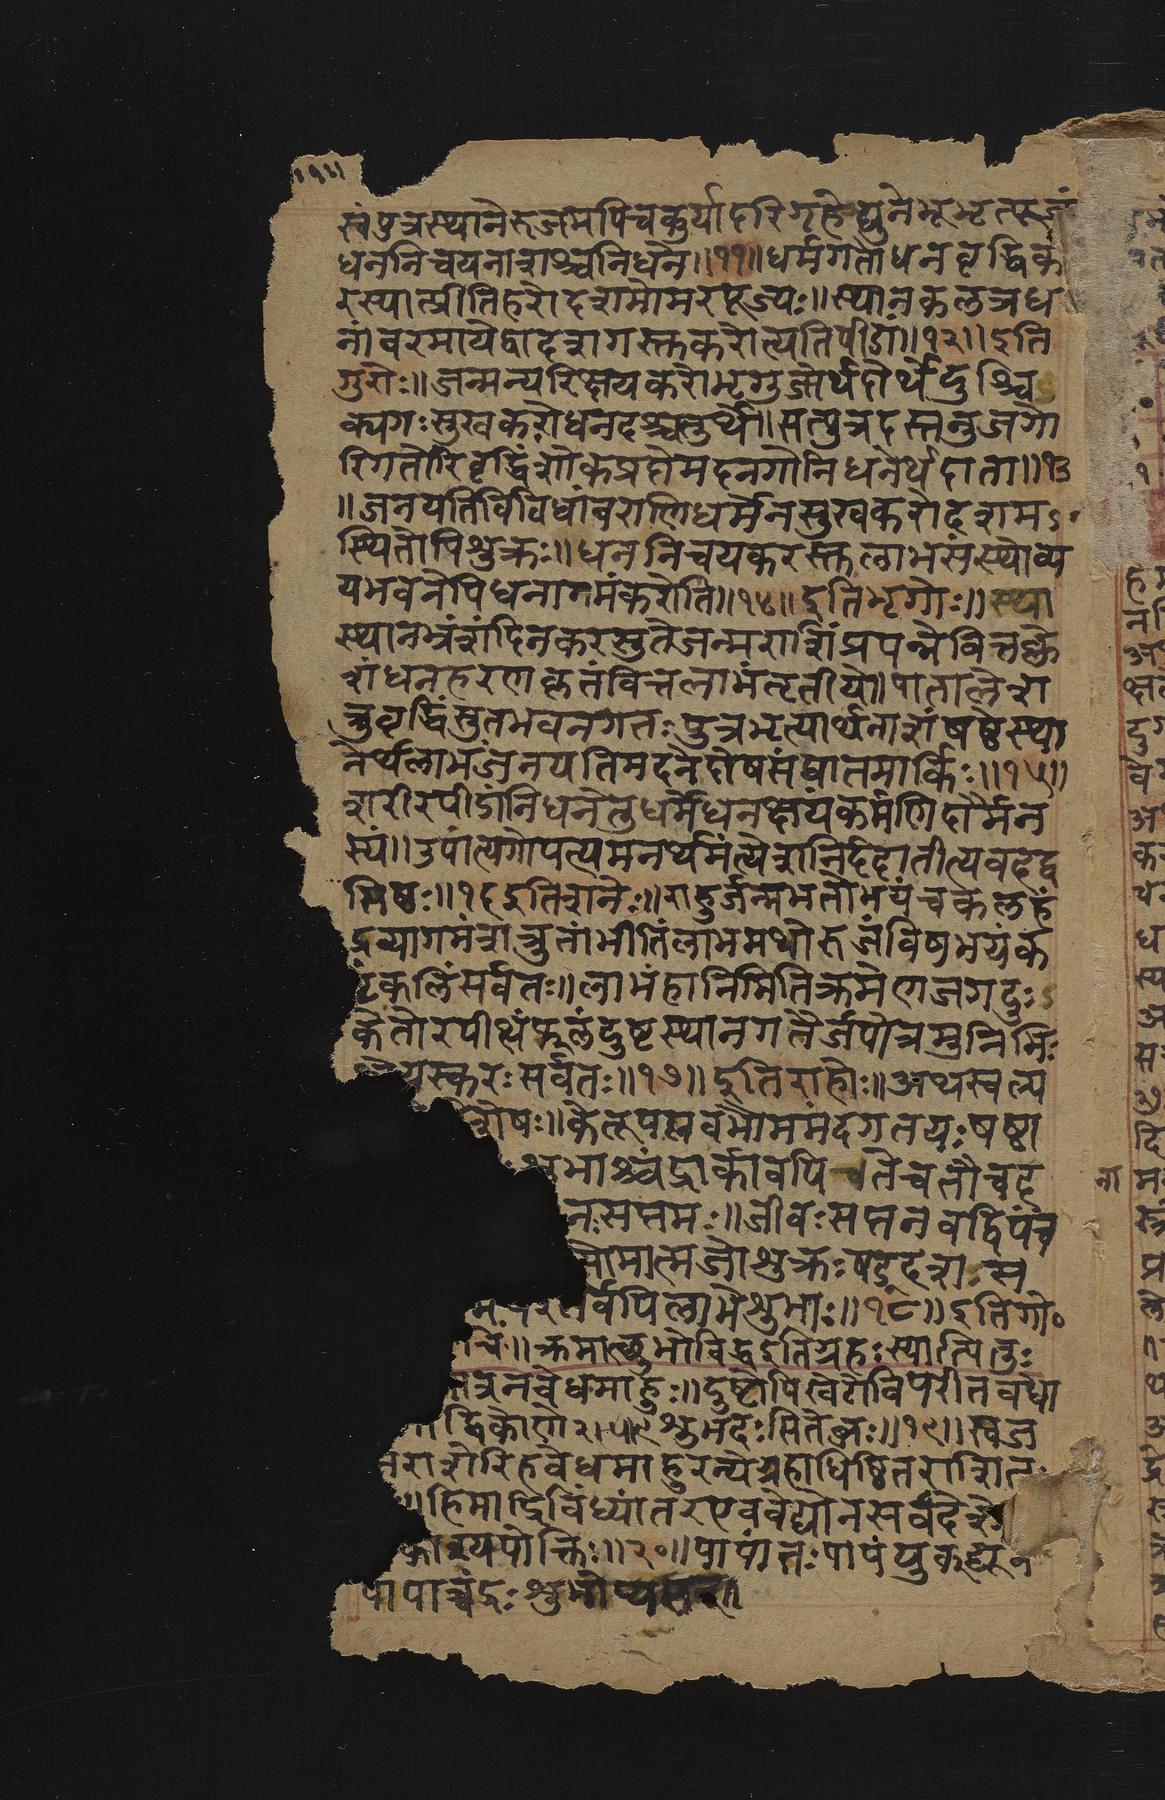 खंपुत्रस्थानेरुजमपिचकुर्यादरिगृहेद्युनेभूभृत्पूजां
धननिचयनाशश्चनिधने॥११॥धर्मगतोधनवृद्धिक
रस्यात्प्रीतिहरोदशमोमरपूज्यः॥स्थानकलत्रध
नांबरमायेद्वादशगस्तकरोत्यतिपीडां॥१२॥इति
गुरोः॥जन्मन्यरिक्षयकरोभृगुजोर्थदोर्थेदुश्चि
क्यगःसुखकरोधनदश्चतुर्थे॥सत्पुत्रदस्तनुजगो
रिगतोरिवृद्धिंशोकप्रदोमदनगोनिधनेर्थदाता॥१३
॥जनयतिविविधांबराणिधर्मेनसुखकरोदशमऽ
स्थितोपिशुक्रः॥धननिचयकरस्तलाभसंस्थोव्य
यभवनेपिधनागमंकरोति॥१४॥इतिभृगोः॥स्था
स्थानभ्रंशंदिनकरसुतेजन्मराशिंप्रपन्नेवित्तक्ले
शंधनहरणकृतंवित्तलाभंतृतीये॥पातालेश
त्रुवृद्धिंसुतभवनगतःपुत्रभृत्यार्थनाशंषष्ठेस्था
नेर्थलाभंजनयतिमदनेदोषसंघातमार्किः॥१५॥
शरीरपीडांनिधनेतुधर्मेधनक्षयंकर्मणिदौर्मन
स्यं॥उपांत्यगोपत्यमनर्थमंत्येशनिर्ददातीत्यवदद्व
सिष्ठः॥१६इतिशनेः॥राहुर्जन्मभतोभयंचकलहं
द्रव्यागमंशत्रुतांभीतिंलाभमथोरुजंविषभयंक
ष्टंकलिंसर्वतः॥लाभंहानिमितिक्रमेणजगदुः
केतोरपीत्थंफलंदुष्टस्थानगतैर्जपोत्रमुनिभिः
यस्करःसर्वतः॥१७॥इतिराहोः॥अथस्वल्प
शेषः॥केतूपप्लवभौममंदगतयःषष्ठा
शुभाश्चंद्रार्कावपि तेचतौचद
नःसप्तमः॥जीवःसप्तनवद्विपंच
सोमात्मजोशुक्रःषड्दशस
र्वेपिलाभेशुभाः॥१८॥इतिगो॰
क्रमाच्छुभोविद्धइतिग्रहःस्यात्पितुः
त्रनवेधमाहुः॥दुष्टोपिखेटोविपरीतवेधा
द्विकोणे२।५।९शुभदःसितेब्जः॥१९॥स्वज
राशेरिहवेधमाहुरन्येग्रहाधिष्ठितराशित
॥हिमाद्रिविंध्यांतरएववेधोनसर्वदेशे
काश्यपोक्तिः॥२०॥पापांतःपापयुक्द्यून
पापाच्चंद्रःशुभोप्यसत्
ना